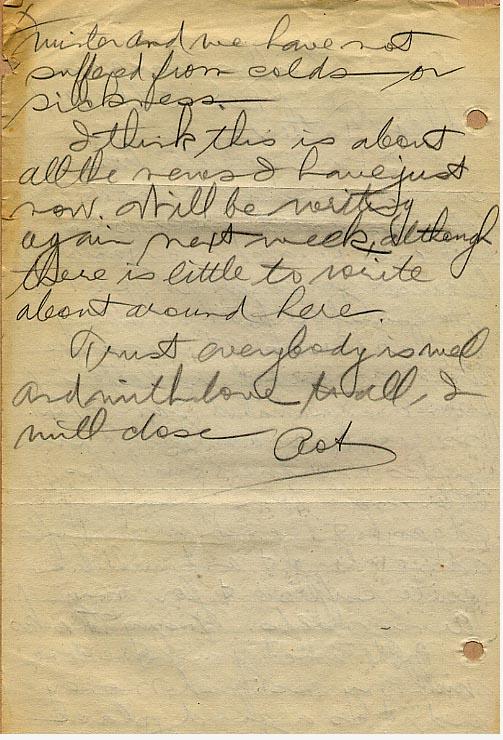 winter and we have not
suffered from colds or
sickness.
I think this is about
all the news I have just
now. Will be writing
again next week, although
there is little to write
about around here.
Trust everybody is well
and with love to all, I
will close